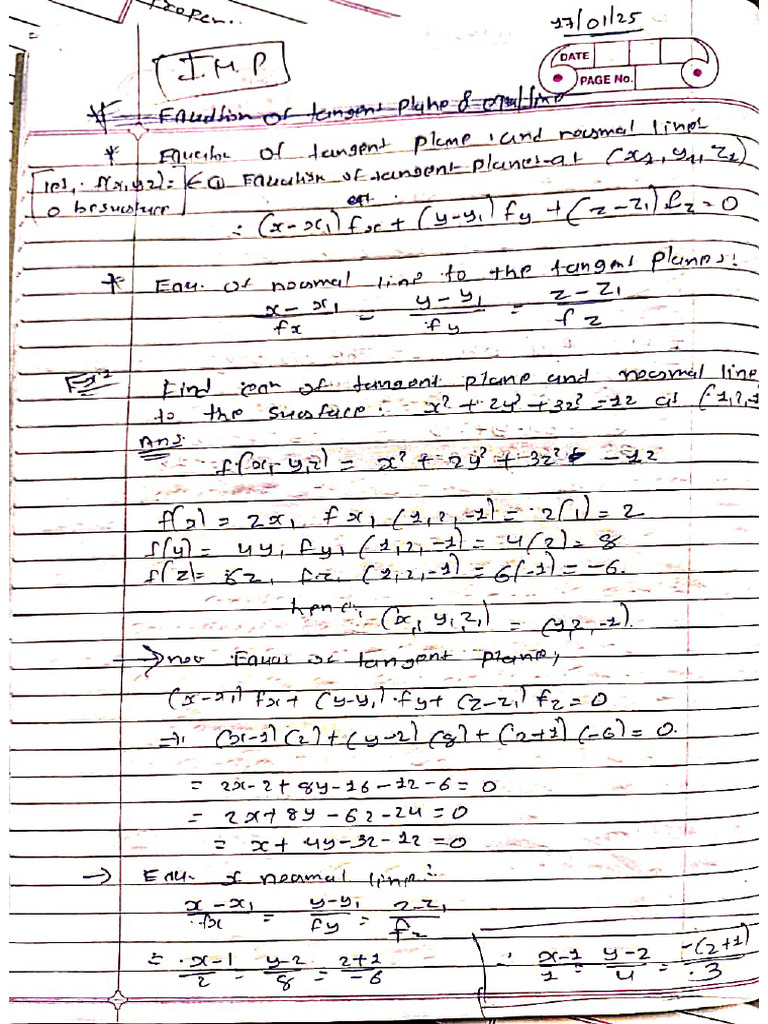 17/01/25
I.M.P
DATE
PAGE No.
Equation of tangent plane & normal line
* Equation of tangent plane and normal line
let, f(x,y,z)= ← @ Equation of tangent planes at (x1, y1, z1)
0 be surface
: (x-x1) fx + (y-y1) fy + (z-z1) fz = 0
* Equ. of normal line to the tangent planes:
x-x1/fx = y-y1/fy = z-z1/fz
Ex:1 Find eqn of tangent plane and normal line
to the surface: x² + 2y² + 3z² = 12 at (1,2,-1
Ans
f(x, y, z) = x² + 2y² + 3z² - 12
f(x) = 2x, fx, (1,2,-1) = 2(1) = 2
f(y) = 4y, fy, (1,2,-1) = 4(2) = 8
f(z) = 6z, fz, (1,2,-1) = 6(-1) = -6.
hence, (x1, y1, z1) = (1,2,-1).
→ now Equa of tangent plane,
(x-x1) fx + (y-y1).fy + (z-z1) fz = 0
⇒ (x-1)(2) + (y-2)(8) + (z+1)(-6) = 0.
= 2x-2+8y-16-12-6=0
= 2x+8y-6z-24=0
= x+4y-3z-12=0
→ Equ. of normal line:
x-x1/fx = y-y1/fy = z-z1/fz
= x-1/2 = y-2/8 = z+1/-6
∴ x-1/1 = y-2/4 = -(z+1)/3